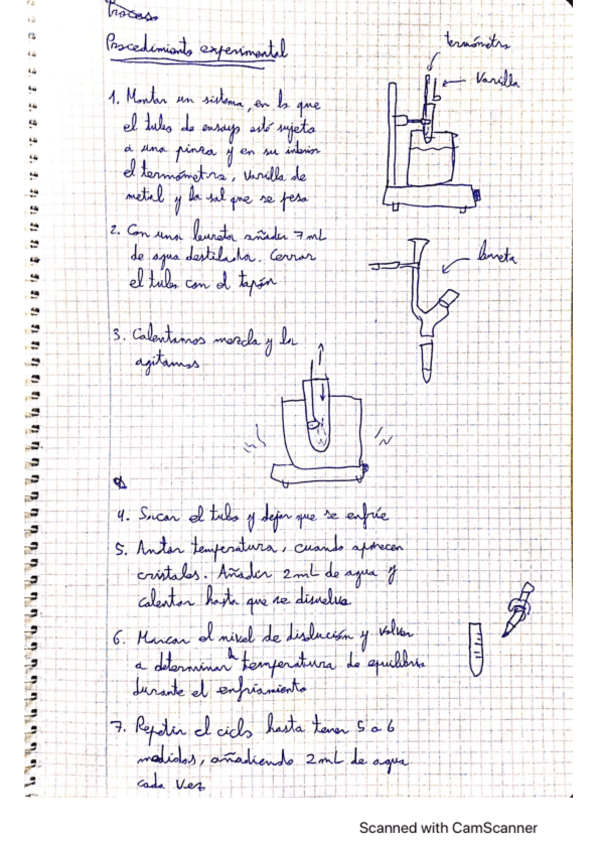 Proceso
Procedimiento experimental
termómetro
Varilla
1. Montar un sistema, en la que
el tubo de ensayo esté sujeto
a una pinza y en su interior
el termómetro, varilla de
metal y la sal que se pesa
2. Con una bureta añadir 7 mL
de agua destilada. Cerrar
el tubo con el tapón
bureta
3. Calentamos mezcla y la
agitamos
4. Sacar el tubo y dejar que se enfríe
5. Anotar temperatura, cuando aparecen
cristales. Añadir 2 mL de agua y
calentar hasta que se disuelva
6. Marcar el nivel de disolución y volver
a determinar la temperatura de equilibrio
durante el enfriamiento
7. Repetir el ciclo hasta tener 5 o 6
medidas, añadiendo 2 mL de agua
cada vez
Scanned with CamScanner